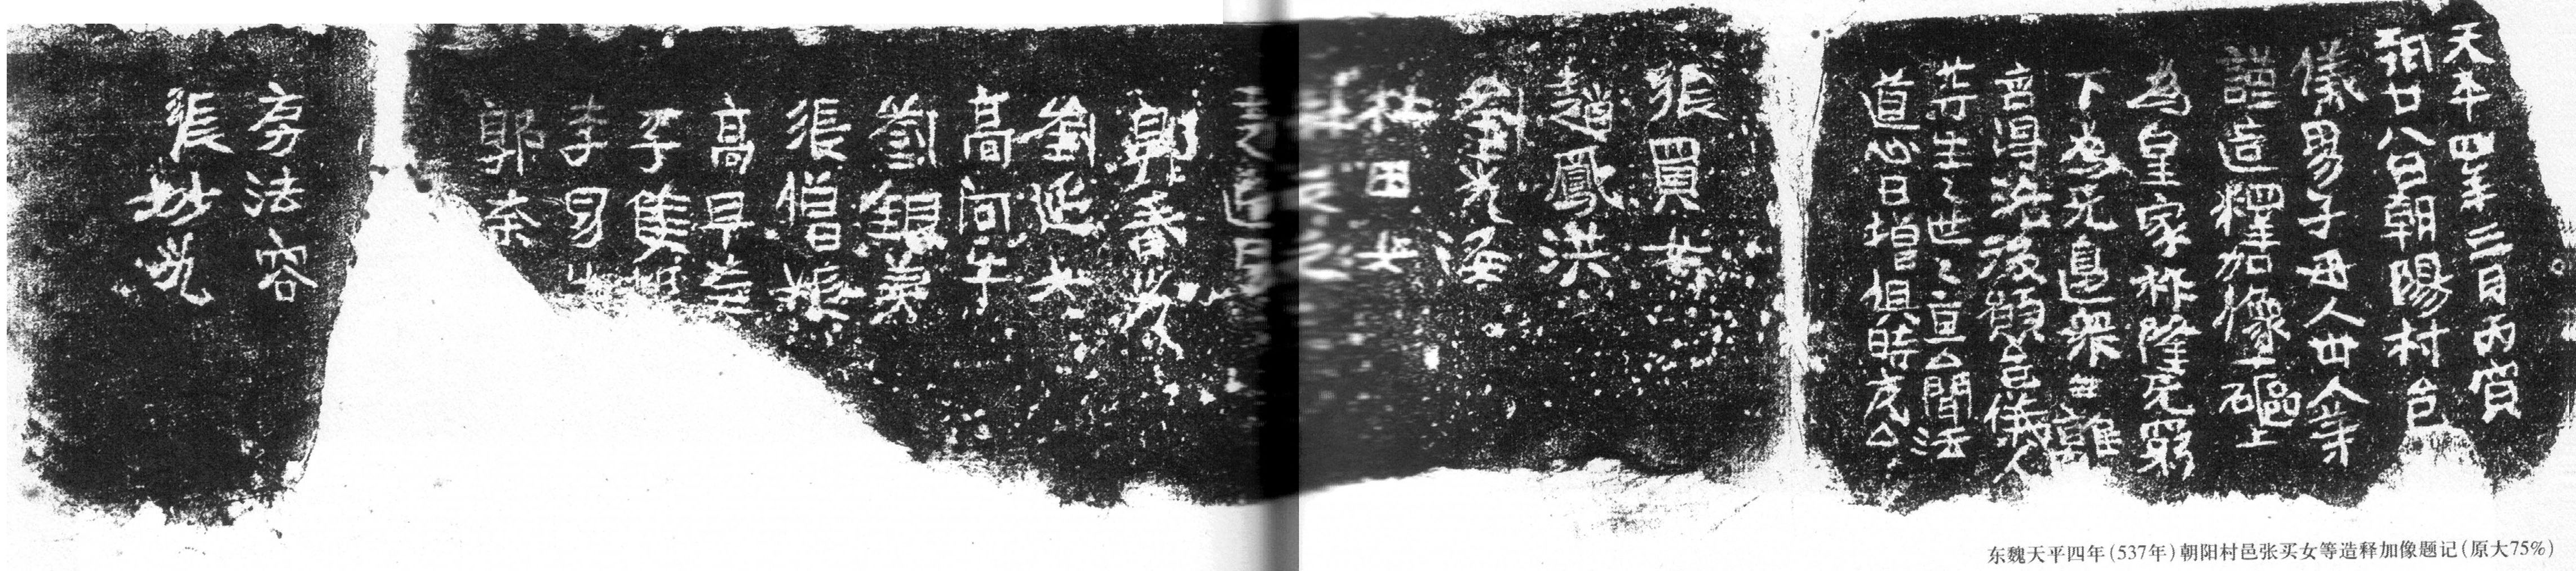 天平四年三月丙寅
朔廿八日朝陽村邑
儀男子母人卅人等
謹造釋加像一軀上
為皇家祚隆无窮
下為无邊衆生離
苦得洛後願邑儀人
等生生世世直△聞法
道心日增俱時成△
張買女
趙鳳洪
劉光海
杜田女
郭春
劉延女
高阿牛
劉銀英
張僧
高早
李雙
李男
郭奈
房法容
張妙光
东魏天平四年(537年)朝阳村邑张买女等造释加像题记(原大75%)